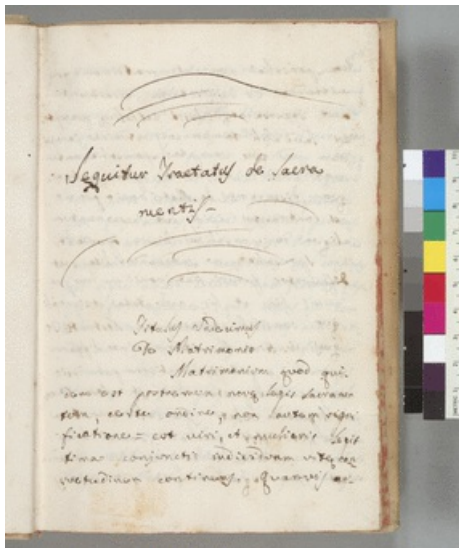 Sequitur Tractatus de Sacra
mentis
Titulus
De Matrimonio
Matrimonium quod qui-
dem est postremum novę legis Sacramen
certe ordine, non autem
ficatione est viri, et mulieris legit
tima conjunctio individuam vitę con
suetudinem continens, Quamvis